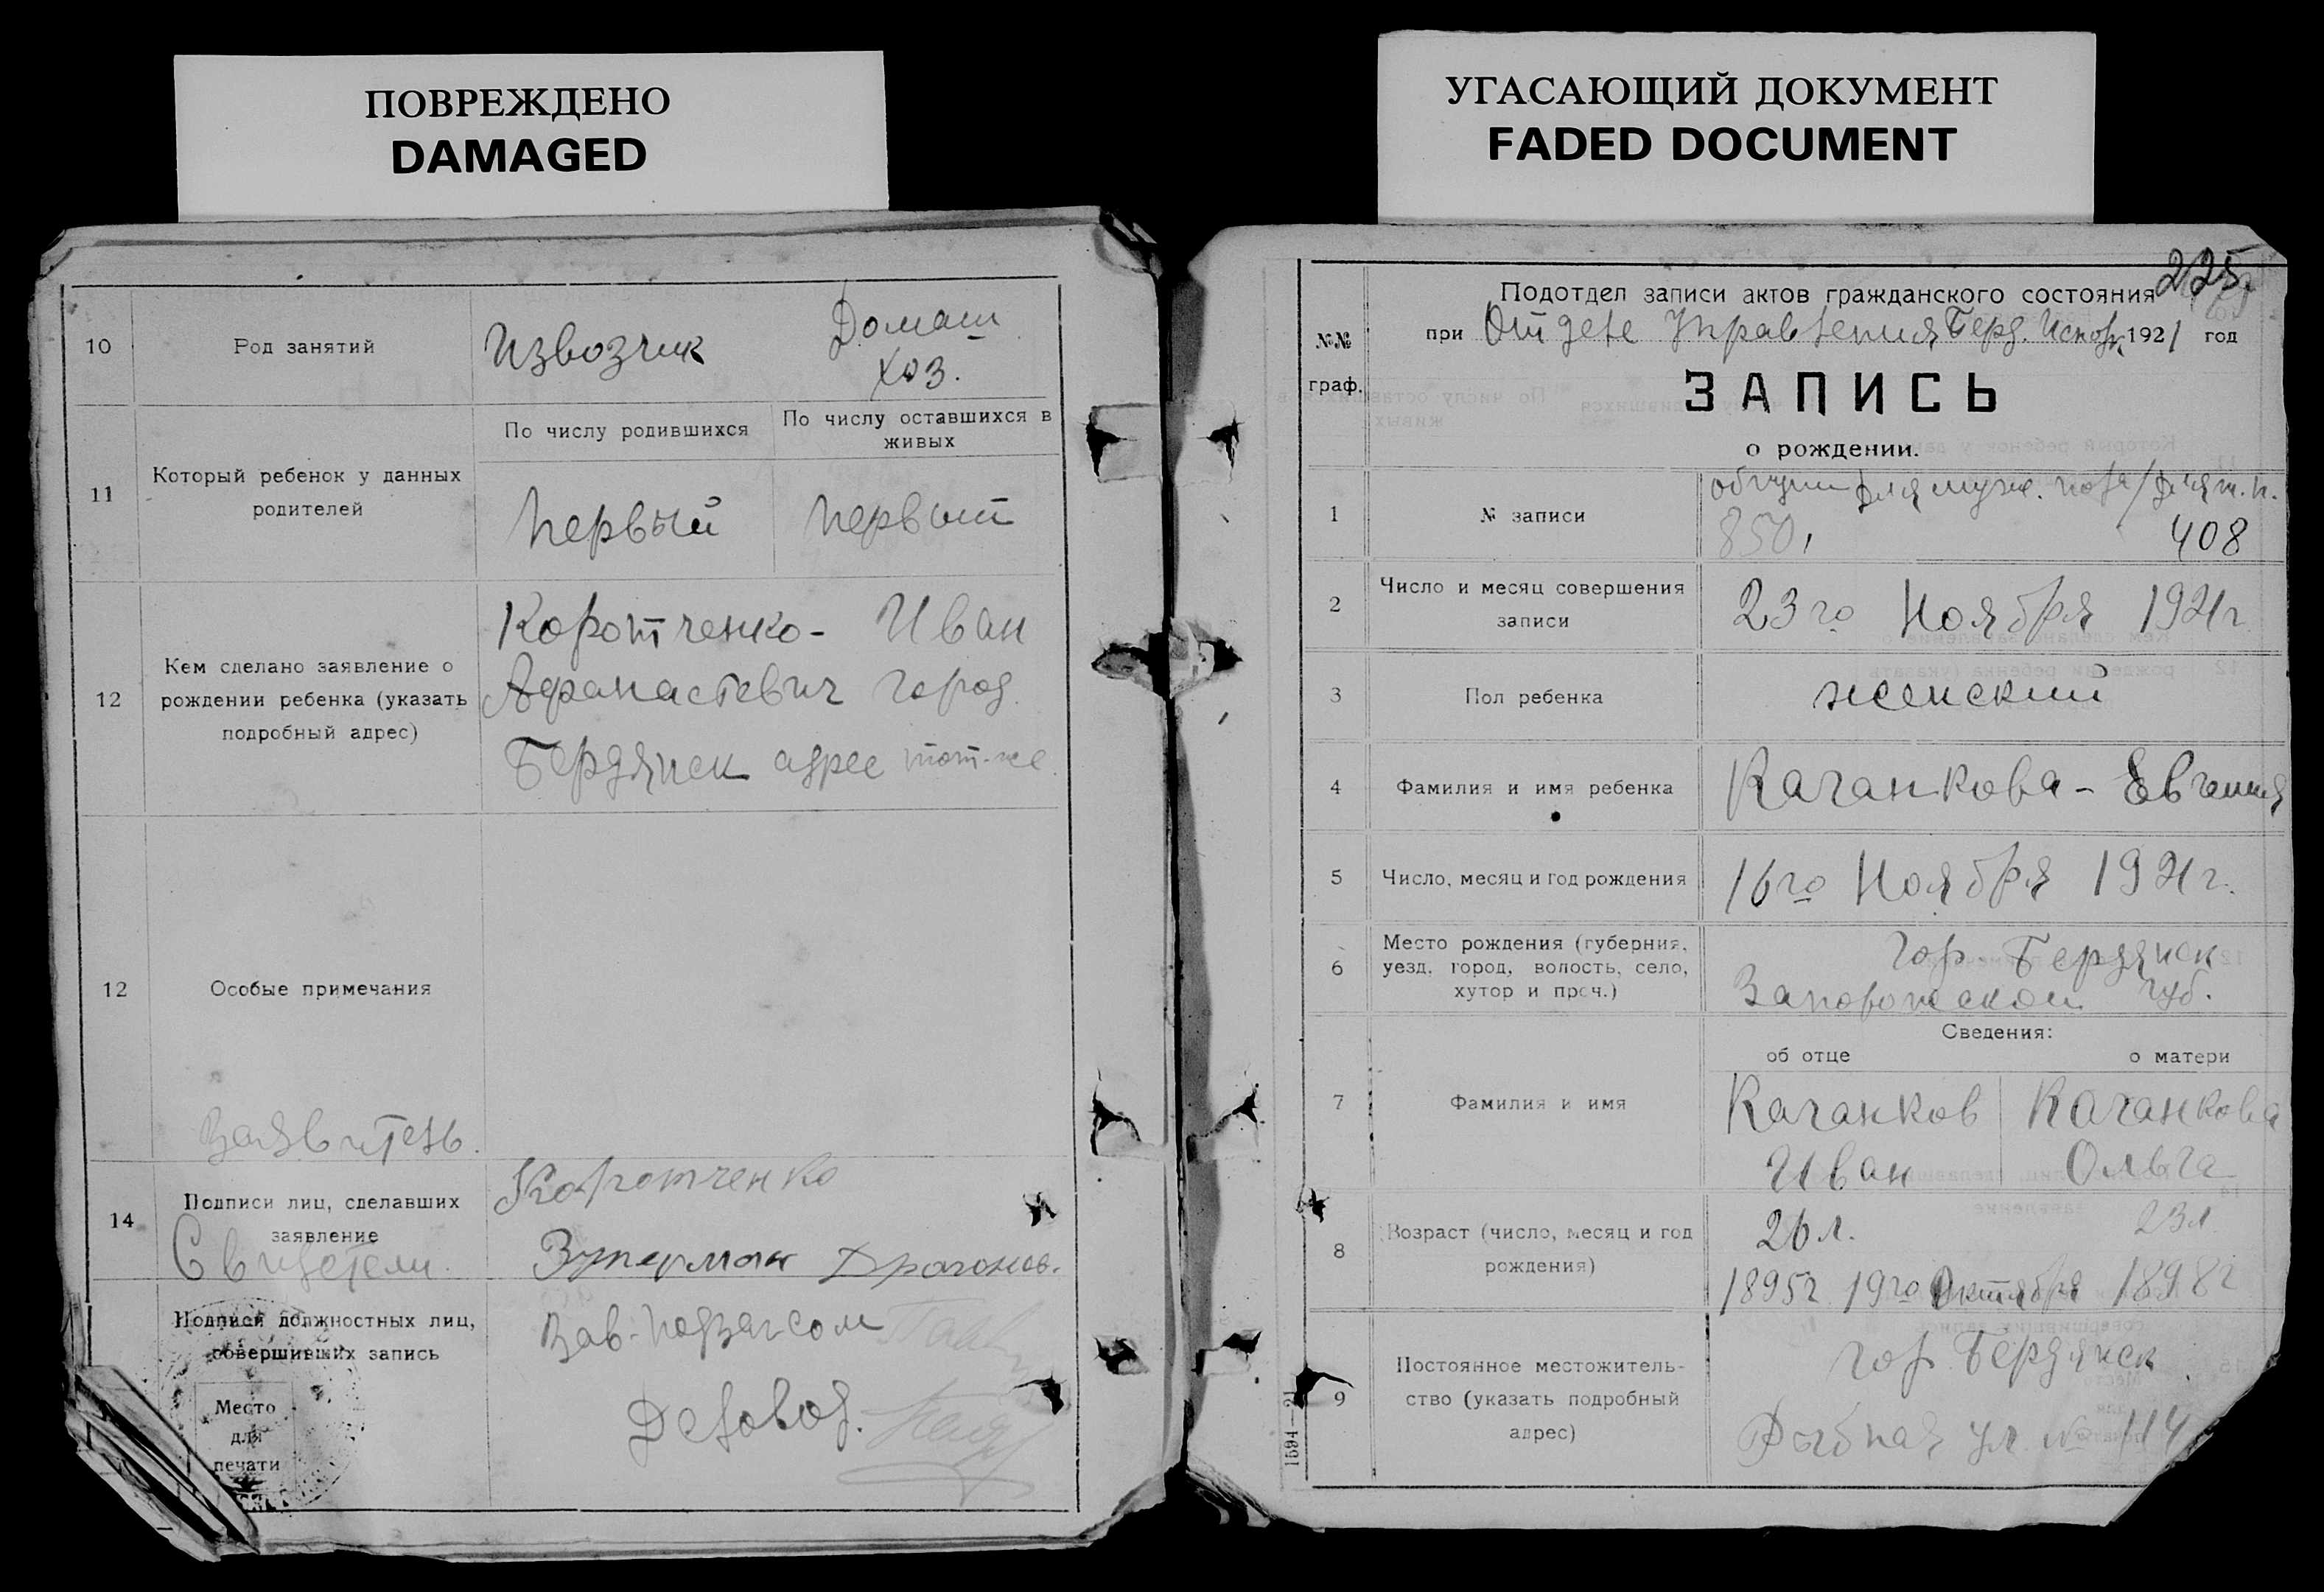 ПОВРЕЖДЕНО
DAMAGED
10
Род занятий
Извозчик
Домаш
хоз.
11
Который ребенок у данных
родителей
По числу родившихся
По числу оставшихся в
живых
первый
первый
12
Кем сделано заявление о
рождении ребенка (указать
подробный адрес)
Коротченко - Иван
Афанасиевич город
Бердянск адрес тот-же
12
Особые примечания
Заявитель.
14
Подписи лиц, сделавших
заявление
Свидетели.
Коротченко
Драгонов.
Подписи должностных лиц,
совершивших запись
Место
для
печати
Зав. подзагсом
Деловод.
УГАСАЮЩИЙ ДОКУМЕНТ
FADED DOCUMENT
225
№№
граф.
Подотдел записи актов гражданского состояния
при Отделе Управления Берд. Исполк 1921 год
ЗАПИСЬ
о рождении.
1
№ записи
общий для муж. пола/для ж. п.
850, 408
2
Число и месяц совершения
записи
23го Ноября 1921г
3
Пол ребенка
женский
4
Фамилия и имя ребенка
Качанкова - Евгения
5
Число, месяц и год рождения
16го Ноября 1921г.
6
Место рождения (губерния,
уезд, город, волость, село,
хутор и проч.)
Гор. Бердянск
Запорожской губ.
Сведения:
об отце
о матери
7
Фамилия и имя
Качанков
Иван
Качанкова
Ольга
8
Возраст (число, месяц и год
рождения)
26 л. 23 л
1895г 19го Октября 1898г
9
Постоянное местожитель-
ство (указать подробный
адрес)
гор. Бердянск
Рыбная ул № 114
1594—21